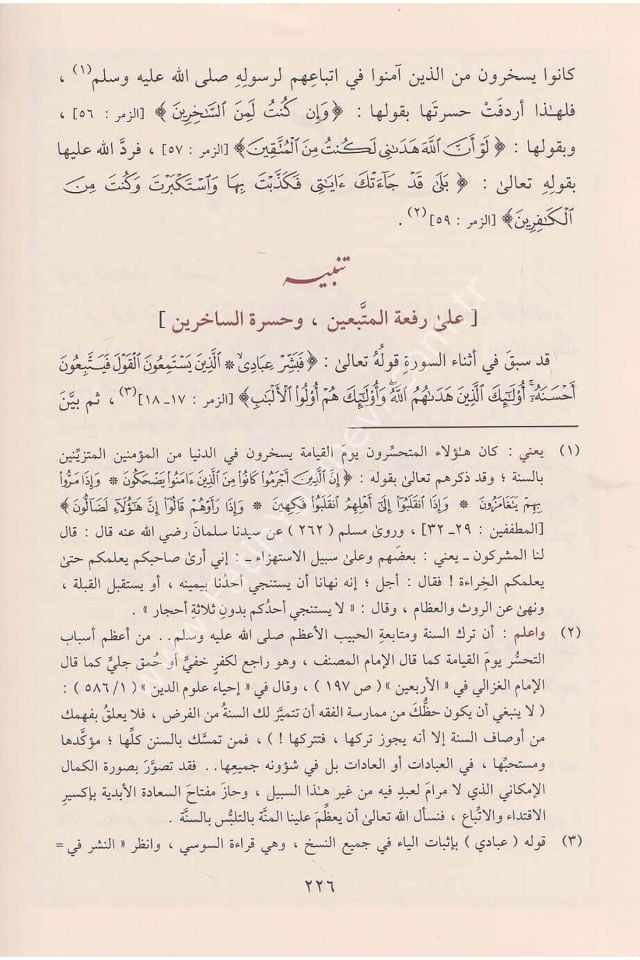 كانوا يسخرون من الذين آمنوا في اتباعهم لرسولِهِ صلى الله عليه وسلم(١) ،
فلهٰذا أردفَتْ حسرتَها بقولها : ﴿ وَإِن كُنتُ لَمِنَ السَّاخِرِينَ ﴾ [الزمر : ٥٦] ،
وبقولها : ﴿ لَوْ أَنَّ اللَّهَ هَدَىٰنِي لَكُنتُ مِنَ الْمُتَّقِينَ ﴾ [الزمر : ٥٧] ، فردَّ الله عليها
بقولِهِ تعالىٰ : ﴿ بَلَىٰ قَدْ جَآءَتْكَ ءَايَٰتِي فَكَذَّبْتَ بِهَا وَاسْتَكْبَرْتَ وَكُنتَ مِنَ
الْكَٰفِرِينَ ﴾ [الزمر : ٥٩](٢) .
تنبيه
[ علىٰ رفعة المتَّبعين ، وحسرة الساخرين ]
قد سبقَ في أثناء السورةِ قولُهُ تعالىٰ : ﴿ فَبَشِّرْ عِبَادِيَ * الَّذِينَ يَسْتَمِعُونَ الْقَوْلَ فَيَتَّبِعُونَ
أَحْسَنَهُۥٓ أُوْلَٰٓئِكَ الَّذِينَ هَدَىٰهُمُ اللَّهُ وَأُوْلَٰٓئِكَ هُمْ أُوْلُوا الْأَلْبَٰبِ ﴾ [الزمر : ١٧ـ١٨](٣) ، ثم بيَّن
(١) يعني : كان هـٰؤلاء المتحسِّرون يومَ القيامة يسخرون في الدنيا من المؤمنين المتزيِّنين
بالسنة ؛ وقد ذكرهم تعالىٰ بقوله : ﴿ إِنَّ الَّذِينَ أَجْرَمُوا كَانُوا مِنَ الَّذِينَ ءَامَنُوا يَضْحَكُونَ * وَإِذَا مَرُّوا
بِهِمْ يَتَغَامَزُونَ * وَإِذَا انقَلَبُوا إِلَىٰ أَهْلِهِمُ انقَلَبُوا فَكِهِينَ * وَإِذَا رَأَوْهُمْ قَالُوا إِنَّ هَٰٓؤُلَآءِ لَضَالُّونَ ﴾
[المطففين : ٢٩ـ٣٢] ، وروىٰ مسلم ( ٢٦٢ ) عن سيدنا سلمانَ رضي الله عنه قال : قال
لنا المشركون ـ يعني : بعضهم وعلىٰ سبيل الاستهزاء ـ : إني أرىٰ صاحبكم يعلمكم حتىٰ
يعلمكم الخِراءة ! فقال : أجل ؛ إنه نهانا أن يستنجي أحدُنا بيمينه ، أو يستقبل القبلة ،
ونهىٰ عن الروث والعظام ، وقال : « لا يستنجي أحدُكم بدونِ ثلاثة أحجار » .
(٢) واعلم : أن ترك السنة ومتابعةِ الحبيب الأعظم صلى الله عليه وسلم.. من أعظم أسباب
التحسُّر يومَ القيامة كما قال الإمام المصنف ، وهو راجع لكفرٍ خفيٍّ أو حُمقٍ جليٍّ كما قال
الإمام الغزالي في « الأربعين » ( ص ١٩٧ ) ، وقال في « إحياء علوم الدين » ( ١/ ٥٨٦ ) :
( لا ينبغي أن يكون حظُّكَ من ممارسة الفقه أن تتميَّز لك السنةُ من الفرض ، فلا يعلقَ بفهمك
من أوصاف السنة إلا أنه يجوز تركها ، فتتركها ! ) ، فمن تمسَّك بالسنن كلِّها ؛ مؤكَّدِها
ومستحبِّها ، في العبادات أو العادات بل في شؤونه جميعِها.. فقد تصوَّرَ بصورة الكمال
الإمكاني الذي لا مرامَ لعبدٍ فيه من غير هـٰذا السبيل ، وحازَ مفتاحَ السعادة الأبدية بإكسيرِ
الاقتداء والاتِّباع ، فنسأل الله تعالىٰ أن يعظِّمَ علينا المنَّة بالتلبُّس بالسنَّة .
(٣) قوله ( عبادي ) بإثبات الياء في جميع النسخ ، وهي قراءة السوسي ، وانظر « النشر في =
٢٢٦